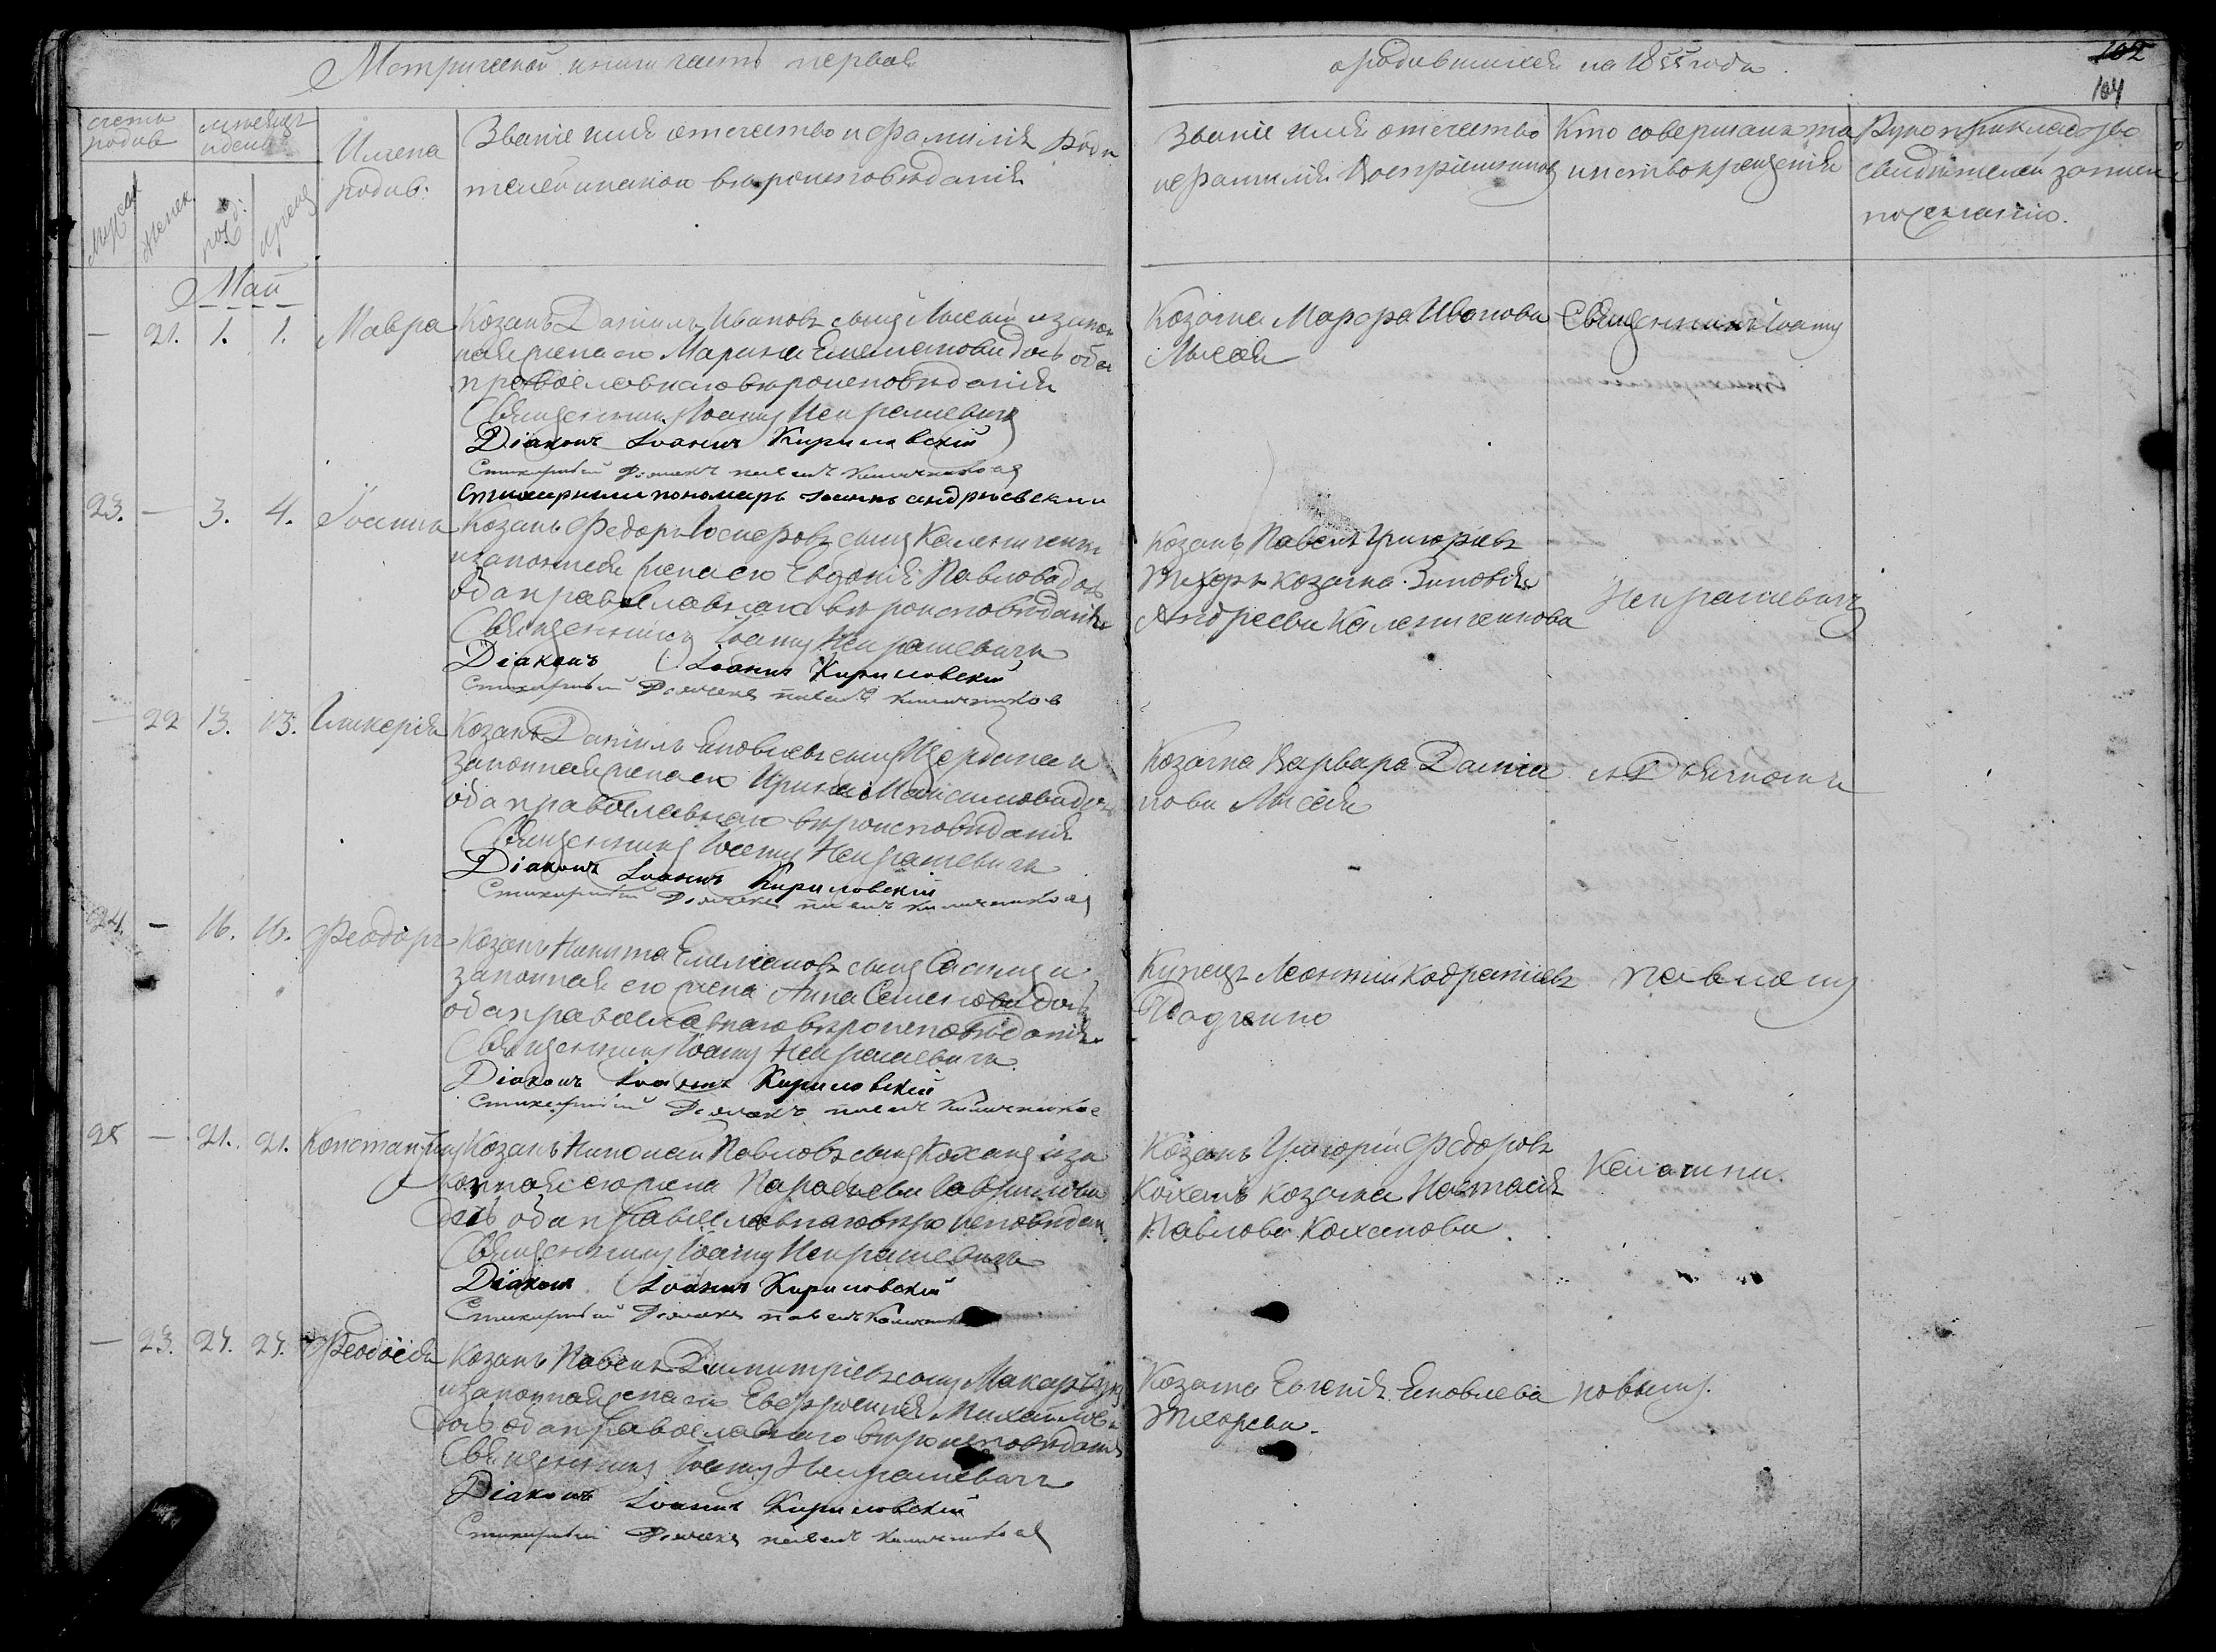 Метрической книги часть первая
о родившихся на 1855 годъ
102
104
счетъ родив
мѣсяцъ и день
Имена
родив:
Званіе имя отечество и фамилія роди
телей и какого вѣроисповѣданія
Званіе имя отечество
и фамилія Воспріемниковъ
Кто совершалъ та
инство крещенія
Рукоприкладство
свидѣтелей записи
по желанію.
мужеск
женск
рожд:
крещ
Май
— 21. 1. 1. Мавра
Козакъ Даніилъ Ивановъ сынъ Лысый и закон
ная жена его Марина Емельянова дочь оба
православнаго вѣроисповѣданія
Священникъ Іоаннъ Некрашевичъ
Діаконъ Іоаннъ Кириловскій
Стихарный Дьячекъ Павелъ
Стихарный пономарь Іоаннъ Андріевский
Козачка Марфа Иванова
Лысая
Священникъ Іоаннъ
23. — 3. 4. Іоаннъ
Козакъ Федоръ Іосифовъ сынъ Каленичен
и законная жена его Евдокія Павлова дочь
оба православнаго вѣроисповѣданія
Священникъ Іоаннъ Некрашевичъ
Діаконъ Іоаннъ Кириловскій
Стихарный Дьячекъ Павелъ
Козакъ Павелъ Григоріевъ
Тхоръ козачка Зиновія
Андреева Калениченкова
Некрашевичъ
— 22 13. 13. Гликерія
Козакъ Даніилъ Яковлевъ сынъ Щербина и
законная жена его Ирина Максимова дочь
оба православнаго вѣроисповѣданія
Священникъ Іоаннъ Некрашевичъ
Діаконъ Іоаннъ Кириловскій
Стихарный Дьячекъ Павелъ
Козачка Варвара Даніи
лова Лысая
съ Дьячкомъ
24. — 16. 16. Феодоръ
Козакъ Никита Емельяновъ сынъ и
законная его жена Анна Семенова дочь
оба православнаго вѣроисповѣданія
Священникъ Іоаннъ Некрашевичъ
Діаконъ Іоаннъ Кириловскій
Стихарный Дьячекъ Павелъ
Купецъ Леонтій Кодратіевъ
Павломъ
25 — 21. 21. Константинъ
Козакъ Николай Павловъ сынъ Коханъ и за
конная его жена Параскева Гаврилова
дочь оба православнаго вѣроисповѣдан
Священникъ Іоаннъ Некрашевичъ
Діаконъ Іоаннъ Кириловскій
Стихарный Дьячекъ Павелъ
Козакъ Григорій Федоровъ
Коханъ козачка Настасія
Павлова Коханова.
— 23. 24. 24. Феодосія
Козакъ Павелъ Димитріевъ сынъ
и законная жена его Евфросинія Михайлова
дочь оба православнаго вѣроисповѣданія
Священникъ Іоаннъ Некрашевичъ
Діаконъ Іоаннъ Кириловскій
Стихарный Дьячекъ Павелъ
Козачка Евгенія Яковлева
Тхорева.